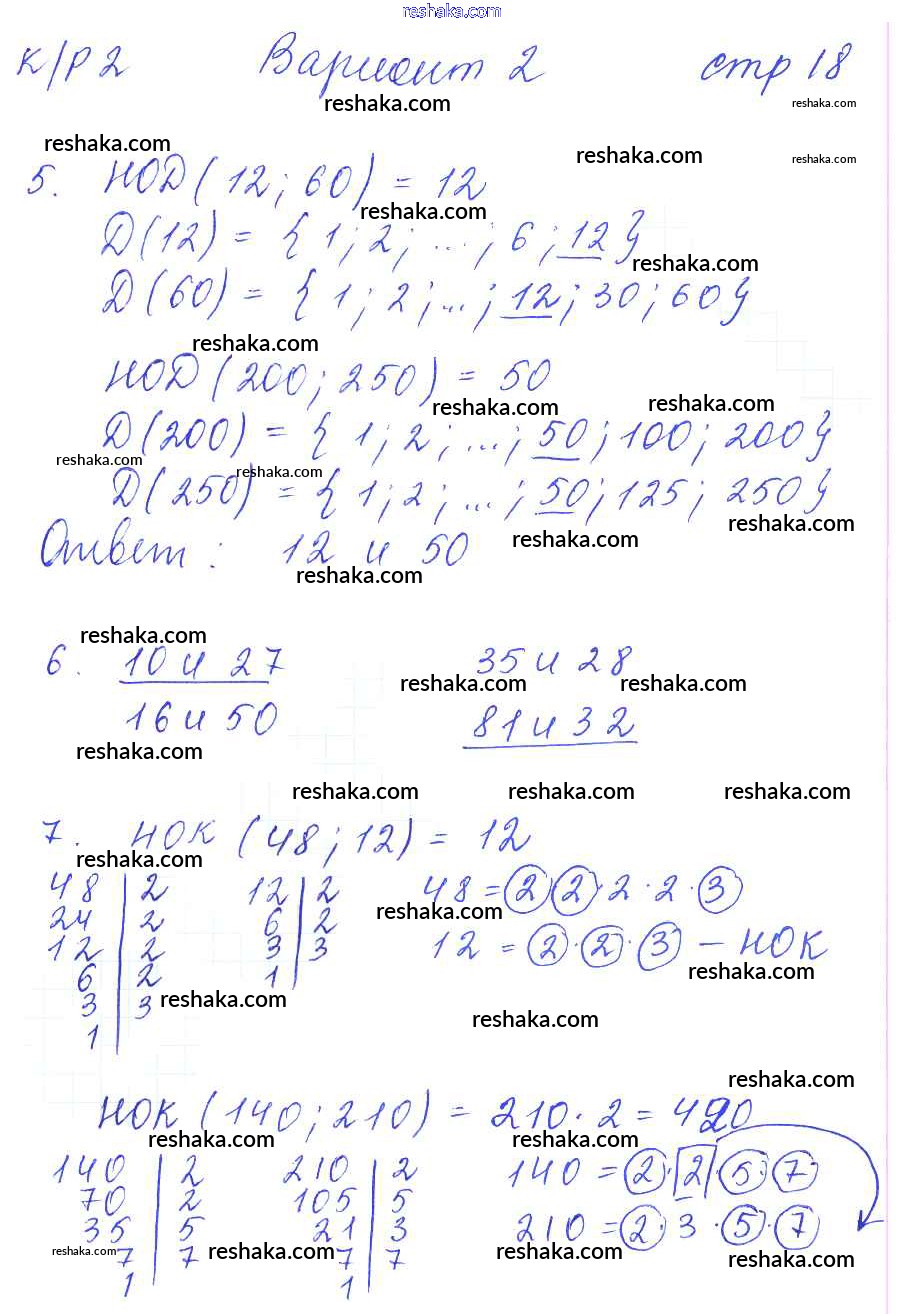 reshaka.com
К/Р 2 Вариант 2 стр 18
reshaka.com reshaka.com
reshaka.com reshaka.com reshaka.com
5. НОД (12; 60) = 12
reshaka.com
Д(12) = {1; 2; ...; 6; 12}
reshaka.com
Д(60) = {1; 2; ...; 12; 30; 60}
reshaka.com
НОД (200; 250) = 50
reshaka.com reshaka.com
Д(200) = {1; 2; ...; 50; 100; 200}
reshaka.com reshaka.com
Д(250) = {1; 2; ...; 50; 125; 250}
reshaka.com reshaka.com
Ответ: 12 и 50
reshaka.com
reshaka.com
6. 10 и 27 35 и 28
reshaka.com reshaka.com
16 и 50 81 и 32
reshaka.com
reshaka.com reshaka.com reshaka.com
7. НОК (48; 12) = 12
reshaka.com
48 | 2 12 | 2 48 = 2 2 · 2 · 2 · 3
reshaka.com
24 | 2 6 | 2
12 | 2 3 | 3 12 = 2 · 2 · 3 – НОК
reshaka.com
6 | 2 1
3 | 3 reshaka.com
1
reshaka.com
reshaka.com
НОК (140; 210) = 210 · 2 = 420
reshaka.com reshaka.com
140 | 2 210 | 2 140 = 2 · 2 · 5 · 7
70 | 2 105 | 5
35 | 5 21 | 3 210 = 2 · 3 · 5 · 7
reshaka.com reshaka.com reshaka.com reshaka.com
7 | 7 7 | 7
1 1